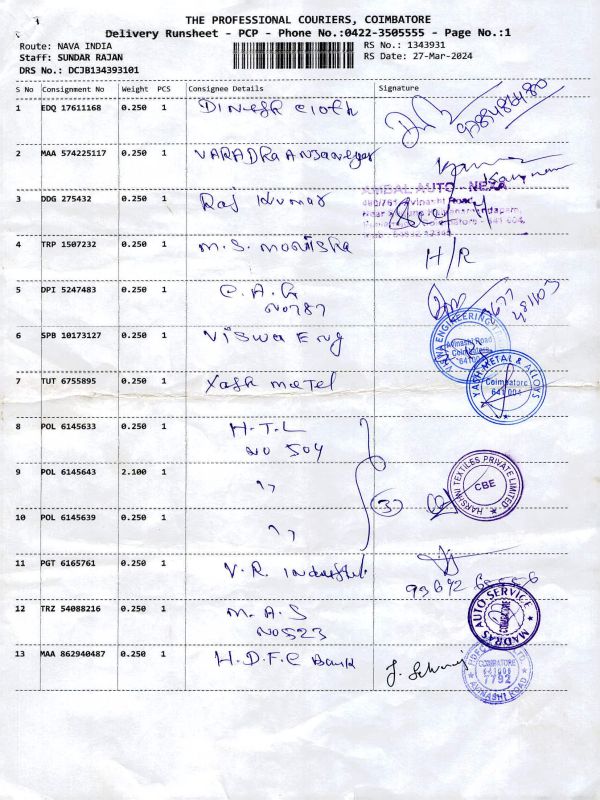 THE PROFESSIONAL COURIERS, COIMBATORE
Delivery Runsheet - PCP - Phone No.:0422-3505555 - Page No.:1
Route: NAVA INDIA
RS No.: 1343931
Staff: SUNDAR RAJAN
RS Date: 27-Mar-2024
DRS No.: DCJB134393101
S No Consignment No Weight PCS Consignee Details Signature
1 EDQ 17611168 0.250 1 Dinesh cloth
2 MAA 574225117 0.250 1
3 DDG 275432 0.250 1 Raj Kumar
AMBAL AUTO - NEXA
4 TRP 1507232 0.250 1 M.S. Monisha H/R
5 DPI 5247483 0.250 1 C.A.G
No 787
6 SPB 10173127 0.250 1 Viswa Eng
Avinashi Road
Coimbatore
7 TUT 6755895 0.250 1 Yash metel
YASH METAL & ALLOYS
Coimbatore
641 004
8 POL 6145633 0.250 1 H.T.L
No 504
9 POL 6145643 2.100 1 ,,
HARSINI TEXTILES PRIVATE LIMITED
CBE
3
10 POL 6145639 0.250 1 ,,
11 PGT 6165761 0.250 1 V.R. Industrial
12 TRZ 54088216 0.250 1 M.A.S
No 523
MADRAS AUTO SERVICE
COIMBATORE
13 MAA 862940487 0.250 1 H.D.F.C Bank
COIMBATORE
7792
AVINASHI ROAD